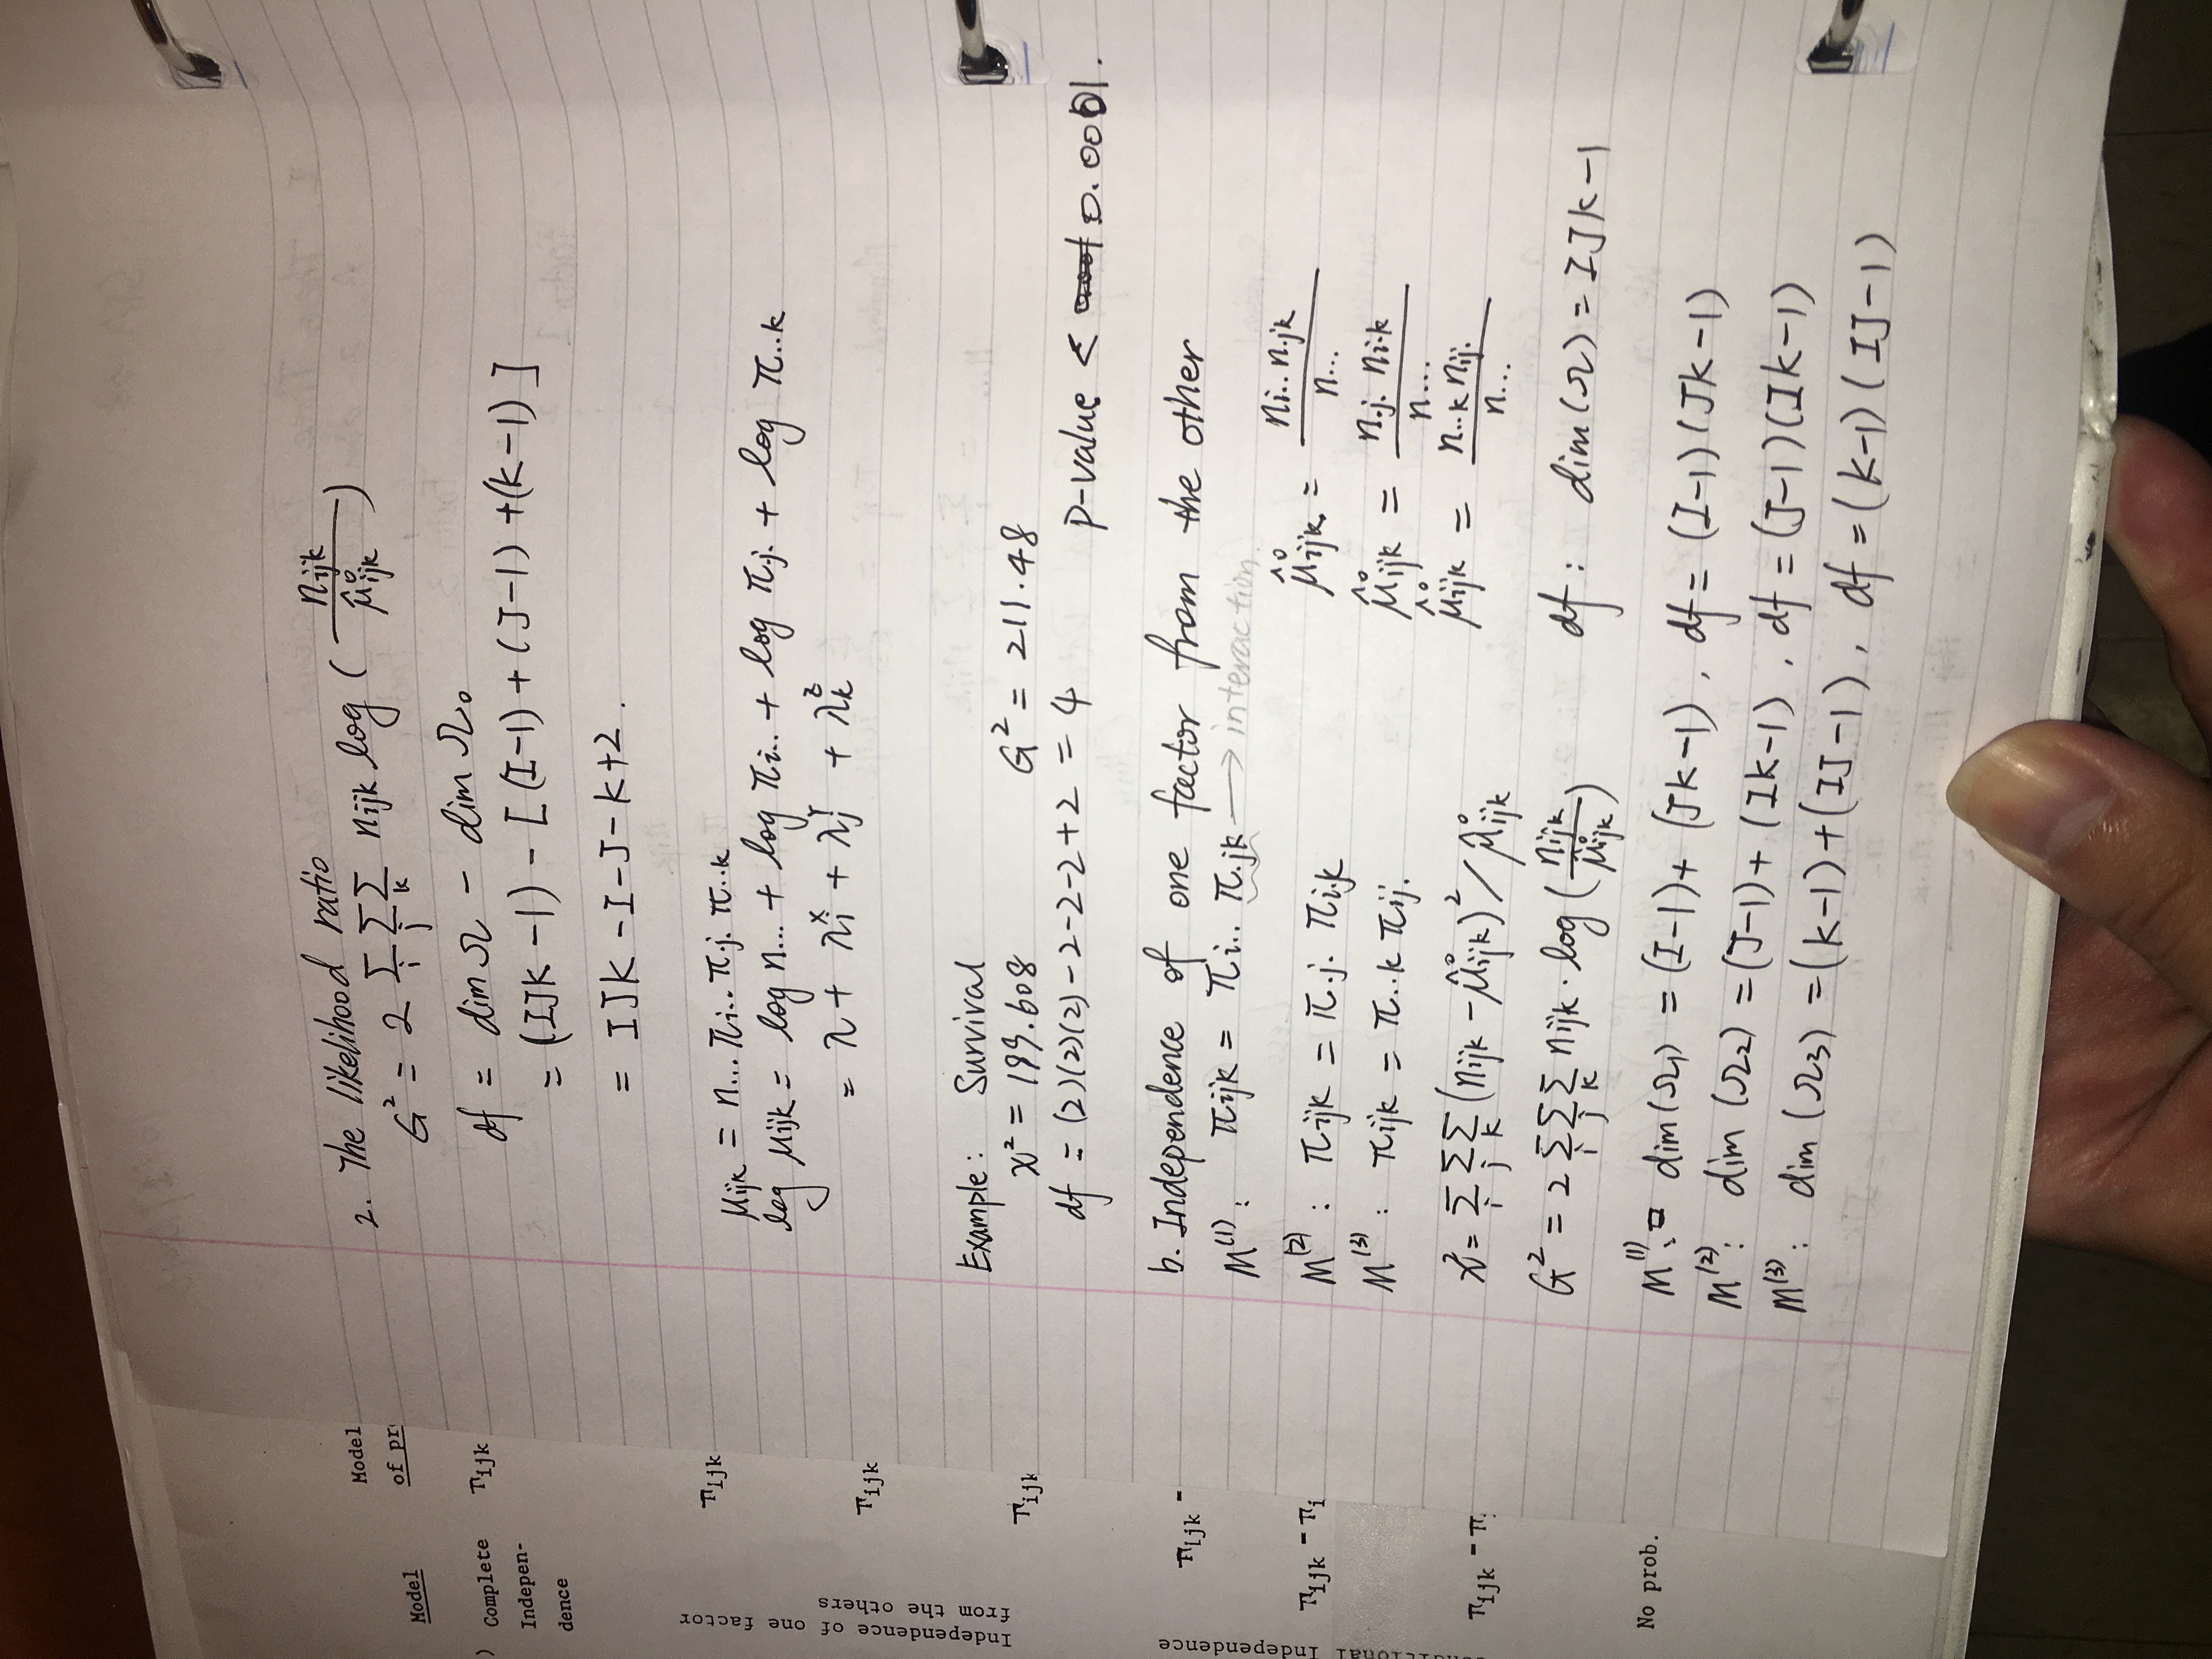 Model
of pr
Model
) Complete
Indepen-
dence
πijk
Independence of one factor
from the others
πijk
πijk
πijk
Independence
πijk -
πijk - πi
πijk - π
No prob.
2. The likelihood ratio
G² = 2 Σi Σj Σk nijk log ( nijk / μ̂⁰ijk )
df = dim Ω - dim Ω₀
= (IJK -1) - [ (I-1) + (J-1) + (K-1) ]
= IJK - I - J - K + 2 .
μijk = n... πi.. π.j. π..k
log μijk = log n... + log πi.. + log π.j. + log π..k
= λ + λᵢˣ + λⱼʸ + λₖᶻ
Example: Survival
χ² = 199.608 G² = 211.48
df = (2)(2)(2) - 2 - 2 - 2 + 2 = 4 p-value < 0.0001.
b. Independence of one factor from the other
M⁽¹⁾: πijk = πi.. π.jk → interaction.
μ̂⁰ijk = ni.. n.jk / n...
M⁽²⁾: πijk = π.j. πi.k
μ̂⁰ijk = n.j. ni.k / n...
M⁽³⁾: πijk = π..k πij.
μ̂⁰ijk = n..k nij. / n...
χ² = Σi Σj Σk (nijk - μ̂⁰ijk)² / μ̂⁰ijk
G² = 2 Σi Σj Σk nijk · log ( nijk / μ̂⁰ijk ) df: dim(Ω) = IJK-1
M⁽¹⁾: dim(Ω₁) = (I-1) + (JK-1), df = (I-1)(JK-1)
M⁽²⁾: dim(Ω₂) = (J-1) + (IK-1), df = (J-1)(IK-1)
M⁽³⁾: dim(Ω₃) = (K-1) + (IJ-1), df = (K-1)(IJ-1)